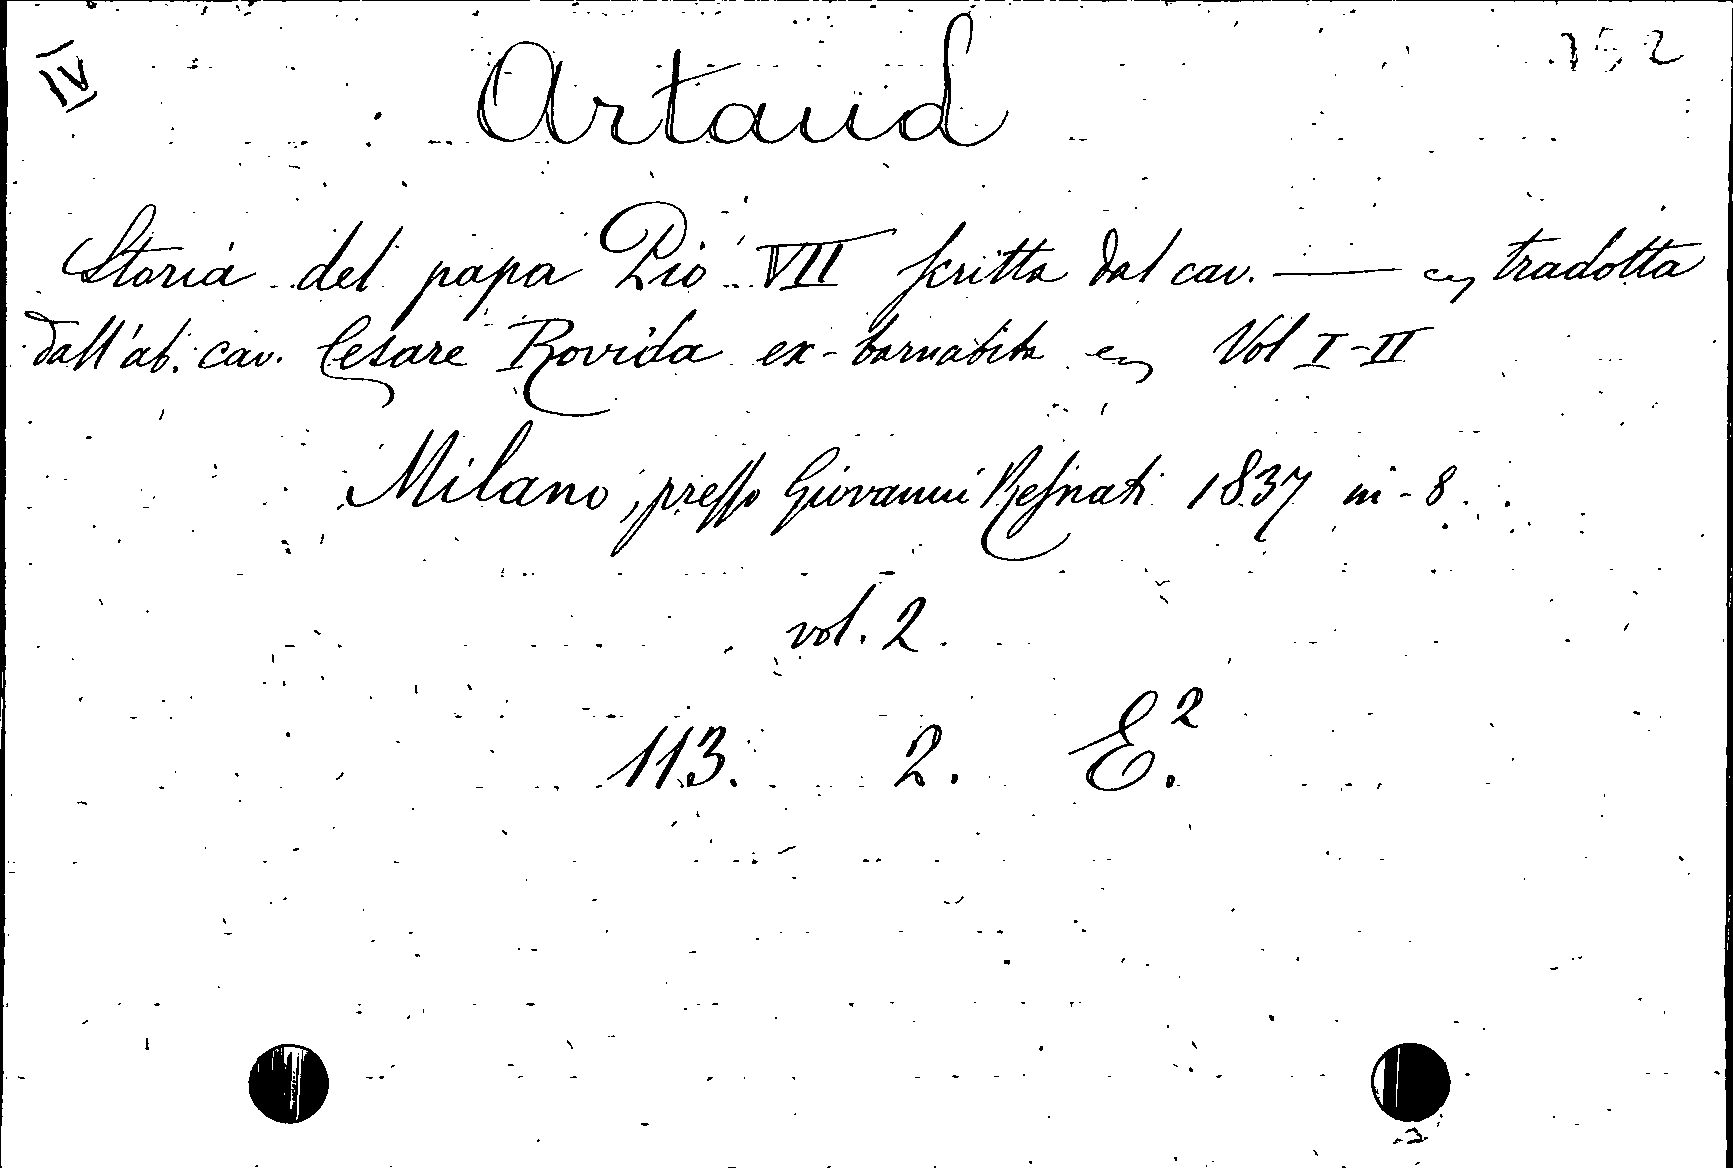 IV
752
Artaud
Storia del papa Pio VII scritta dal cav. —— ec, tradotta
dall'ab. cav. Cesare Rovida ex-barnabita ec, Vol I-II
Milano, presso Giovanni Resnati 1837 in-8.
vol. 2.
113. 2. E.²